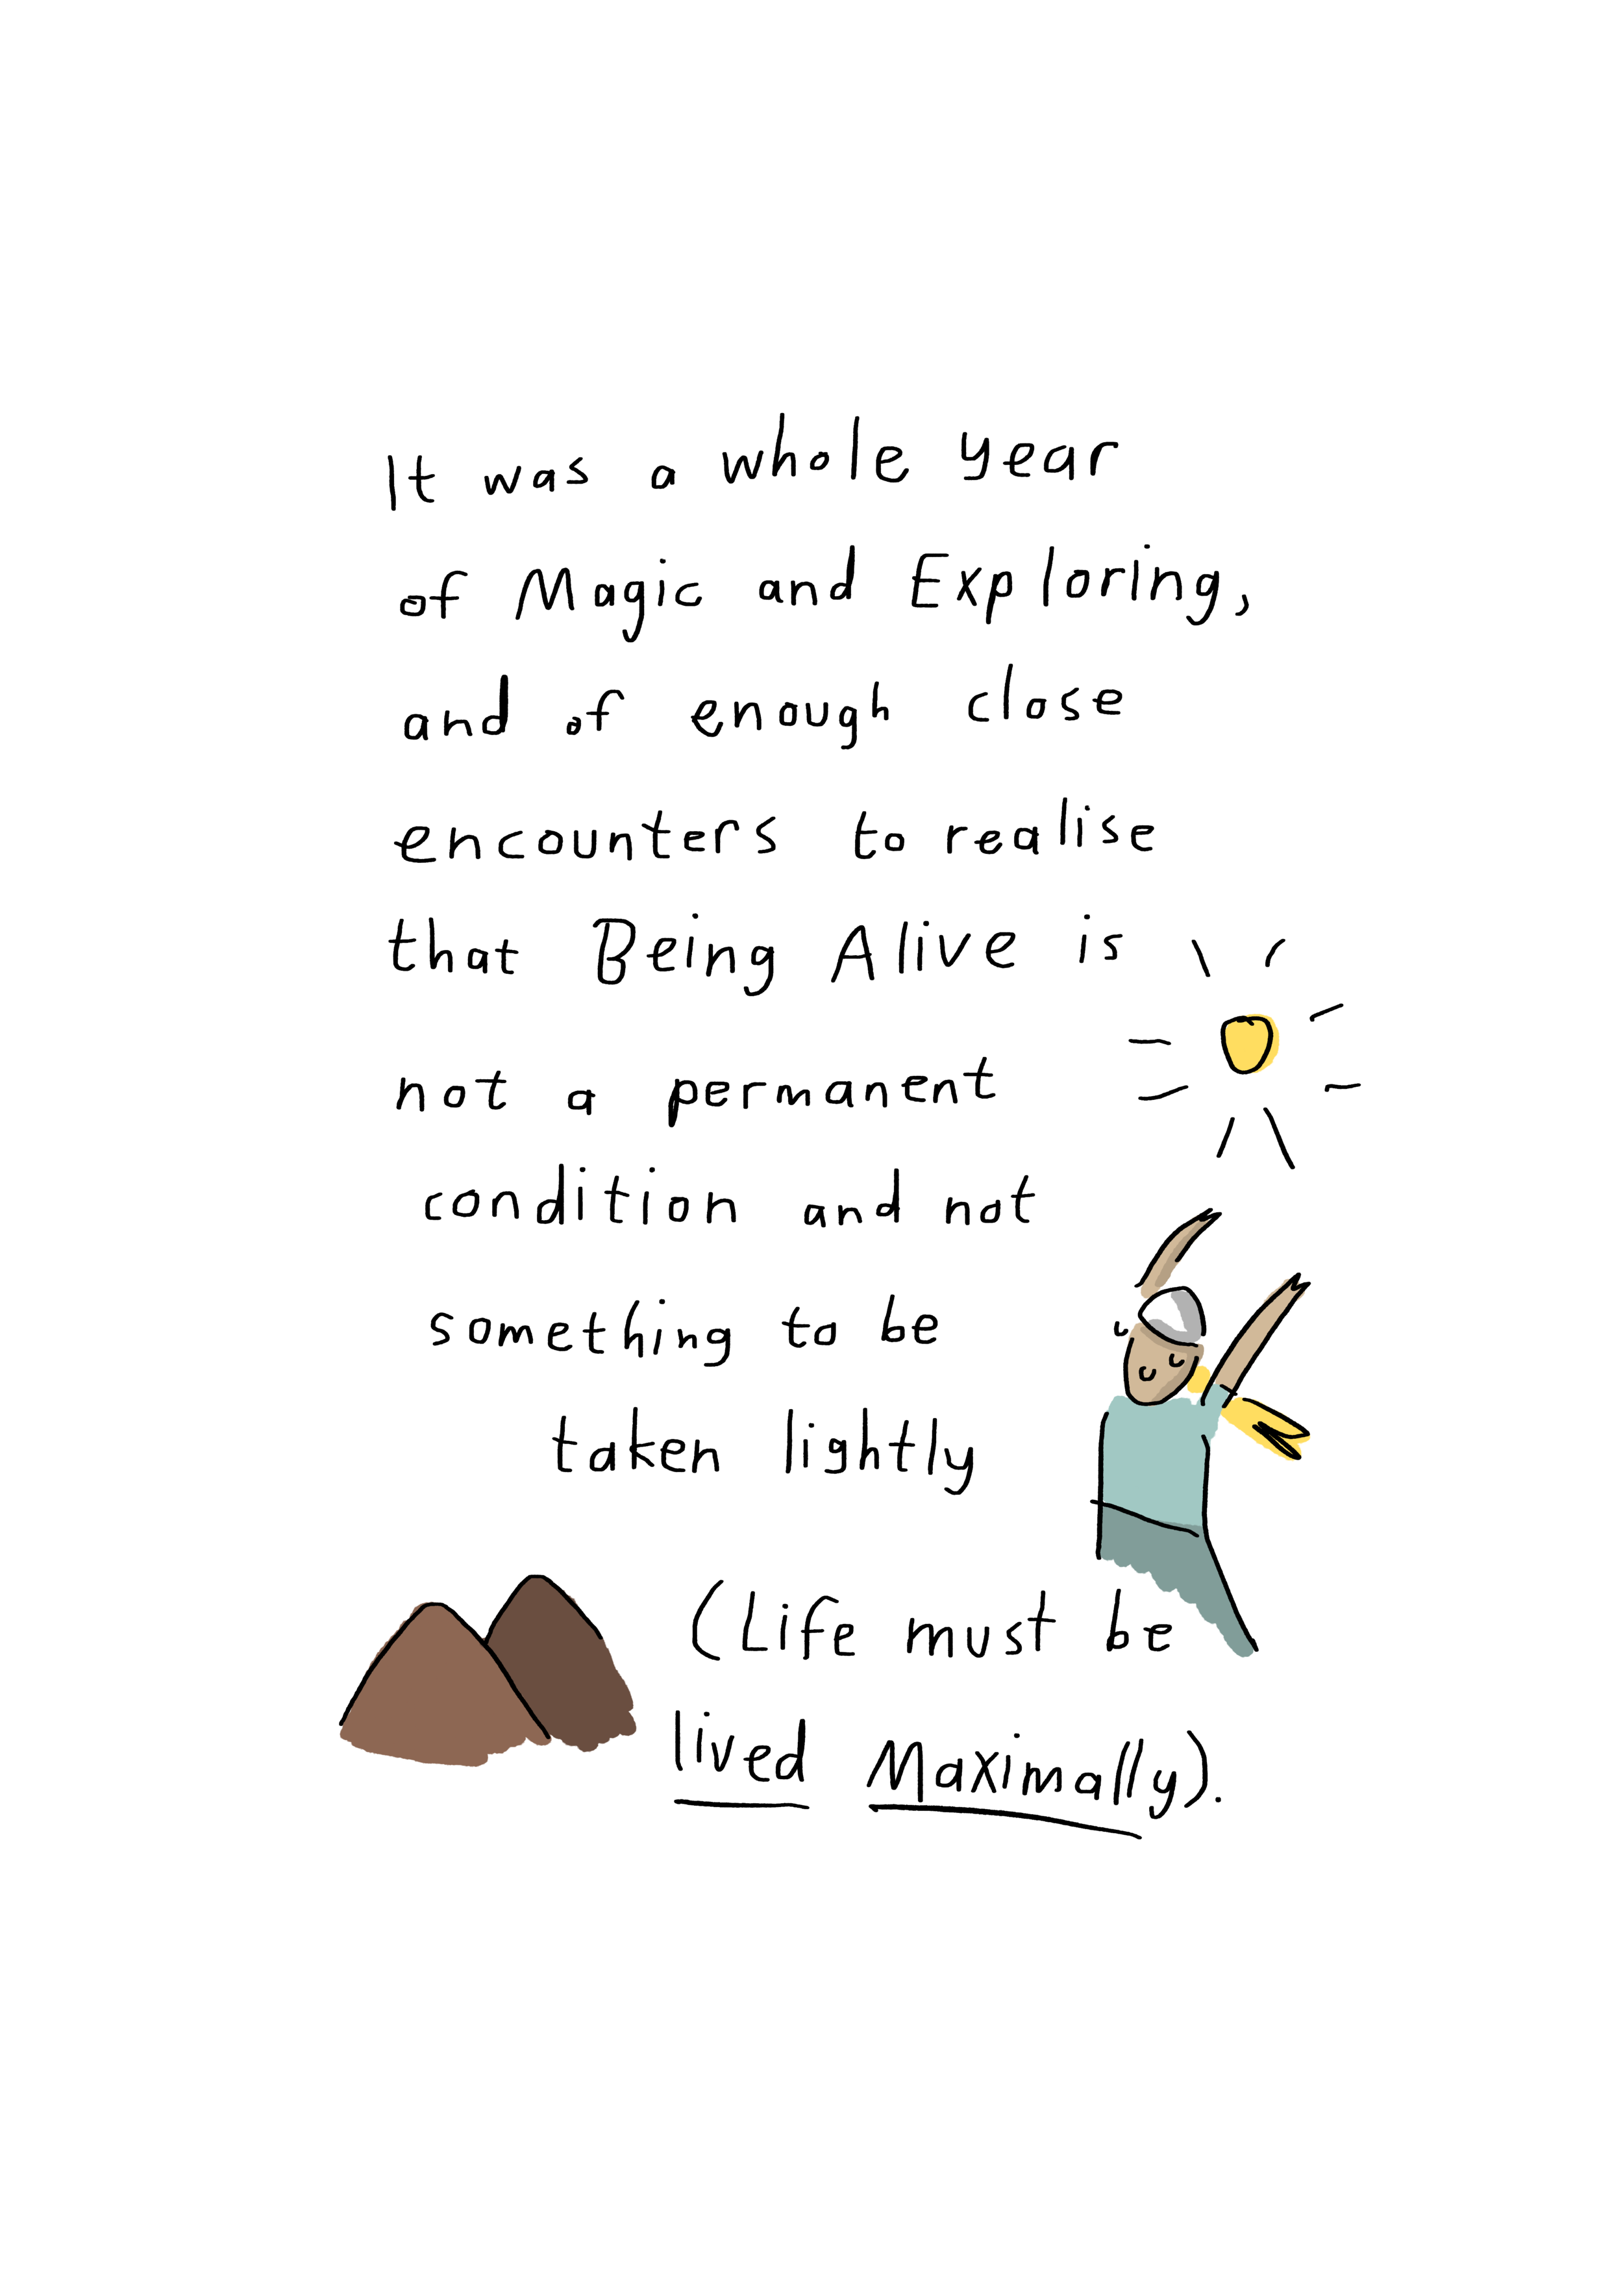 It was a whole year
of Magic and Exploring,
and of enough close
encounters to realise
that Being Alive is
not a permanent
condition and not
something to be
taken lightly
(Life must be
lived Maximally).